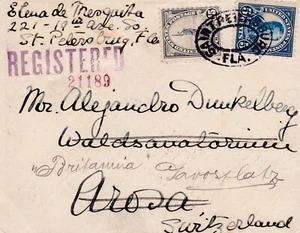 Elena de Mesquita
St. Petersburg, Fla
REGISTERED
21189
SAINT PETERSBURG
FLA.
Mr. Alejandro Dunkelberg
Waldsanatorium
"Britannia" Davosplatz
Arosa
Switzerland